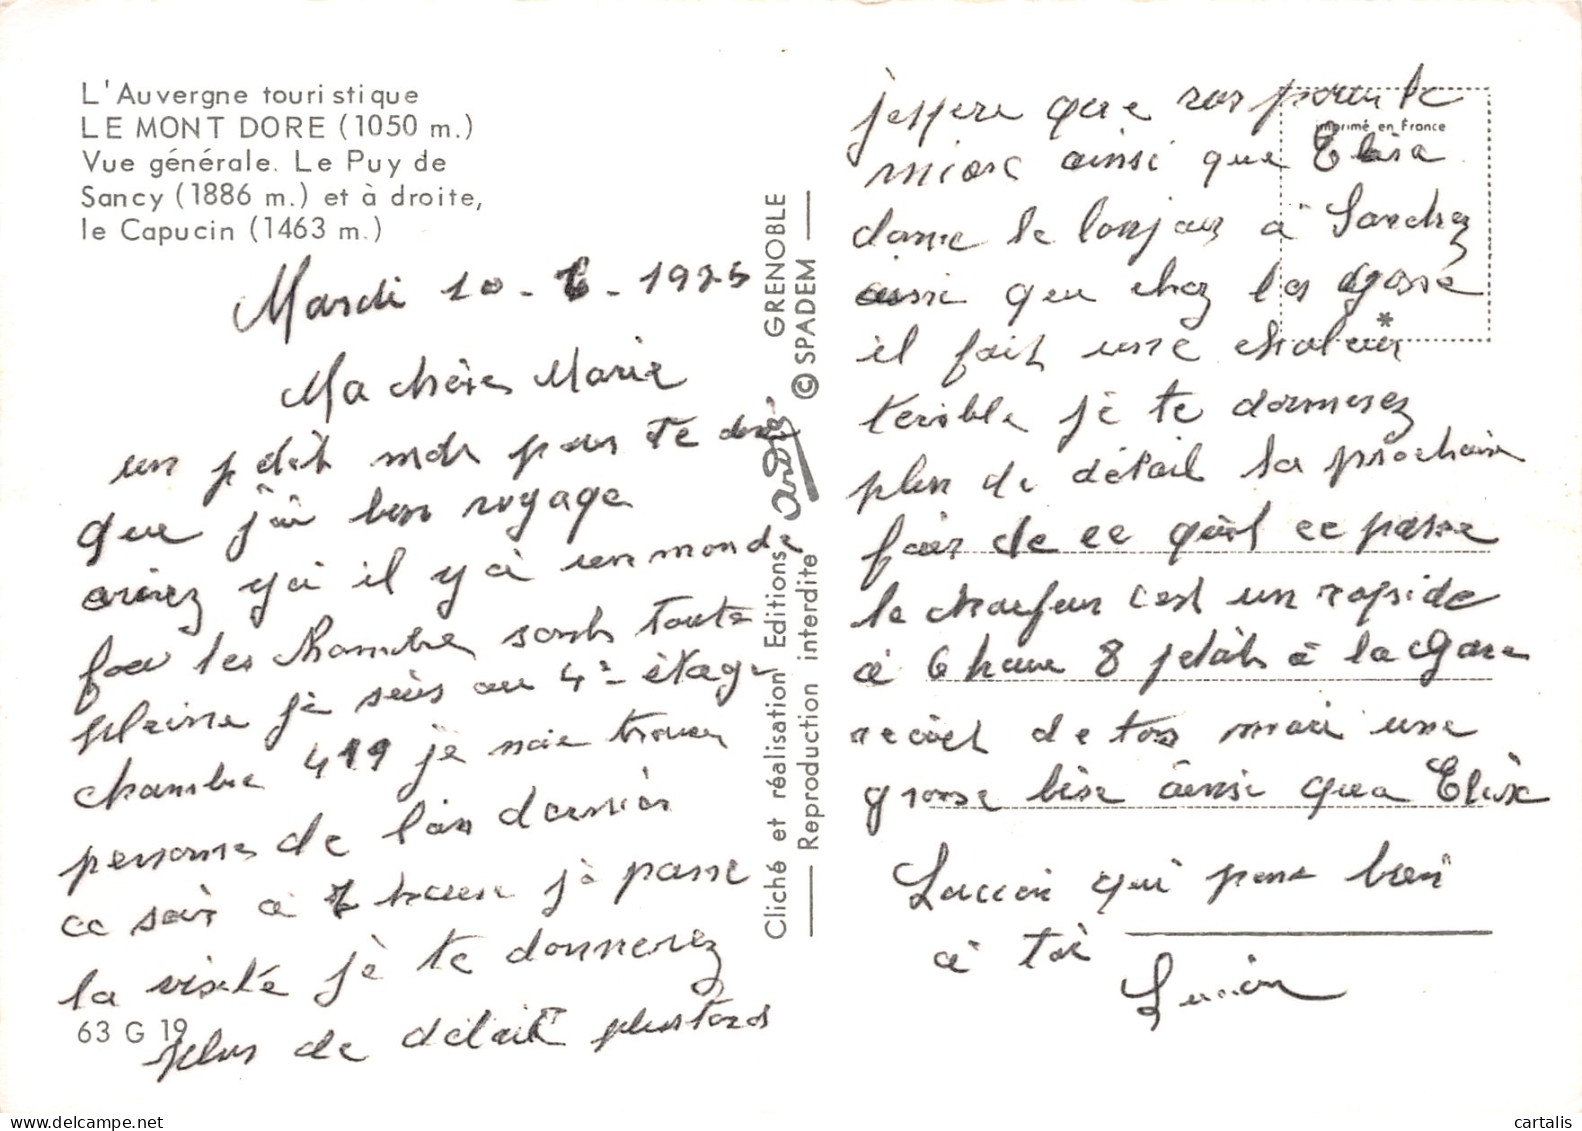 L'Auvergne touristique
LE MONT DORE (1050 m.)
Vue générale. Le Puy de
Sancy (1886 m.) et à droite,
le Capucin (1463 m.)
Mardi 10 - 6 - 1975
Ma chère Marie
un petit mot pour te
que j'ai bon voyage
arivez y a il y a un monde
fou les chambre sont toute
pleine je suis au 4e étage
chambre 419 je
personne de l'an dernier
ce soir a 7 heure je passe
la visite je te donnerez
plus de détail plustard
63 G 19
Cliché et réalisation Editions André GRENOBLE
Reproduction interdite © SPADEM
imprimé en France
jespere que
ainsi que Elisa
dame le a Sanchez
ausi que chez les
il fait une chaleur
terible je te donnerez
plus de détail la prochaine
fois de ce quil ce passe
le chaufeur cest un rapide
a 6 heure 8 jetait a la gare
recoit de ton mari une
grosse bise ainsi que Elisa
Lucien qui pense bien
a toi
Lucien
cartalis